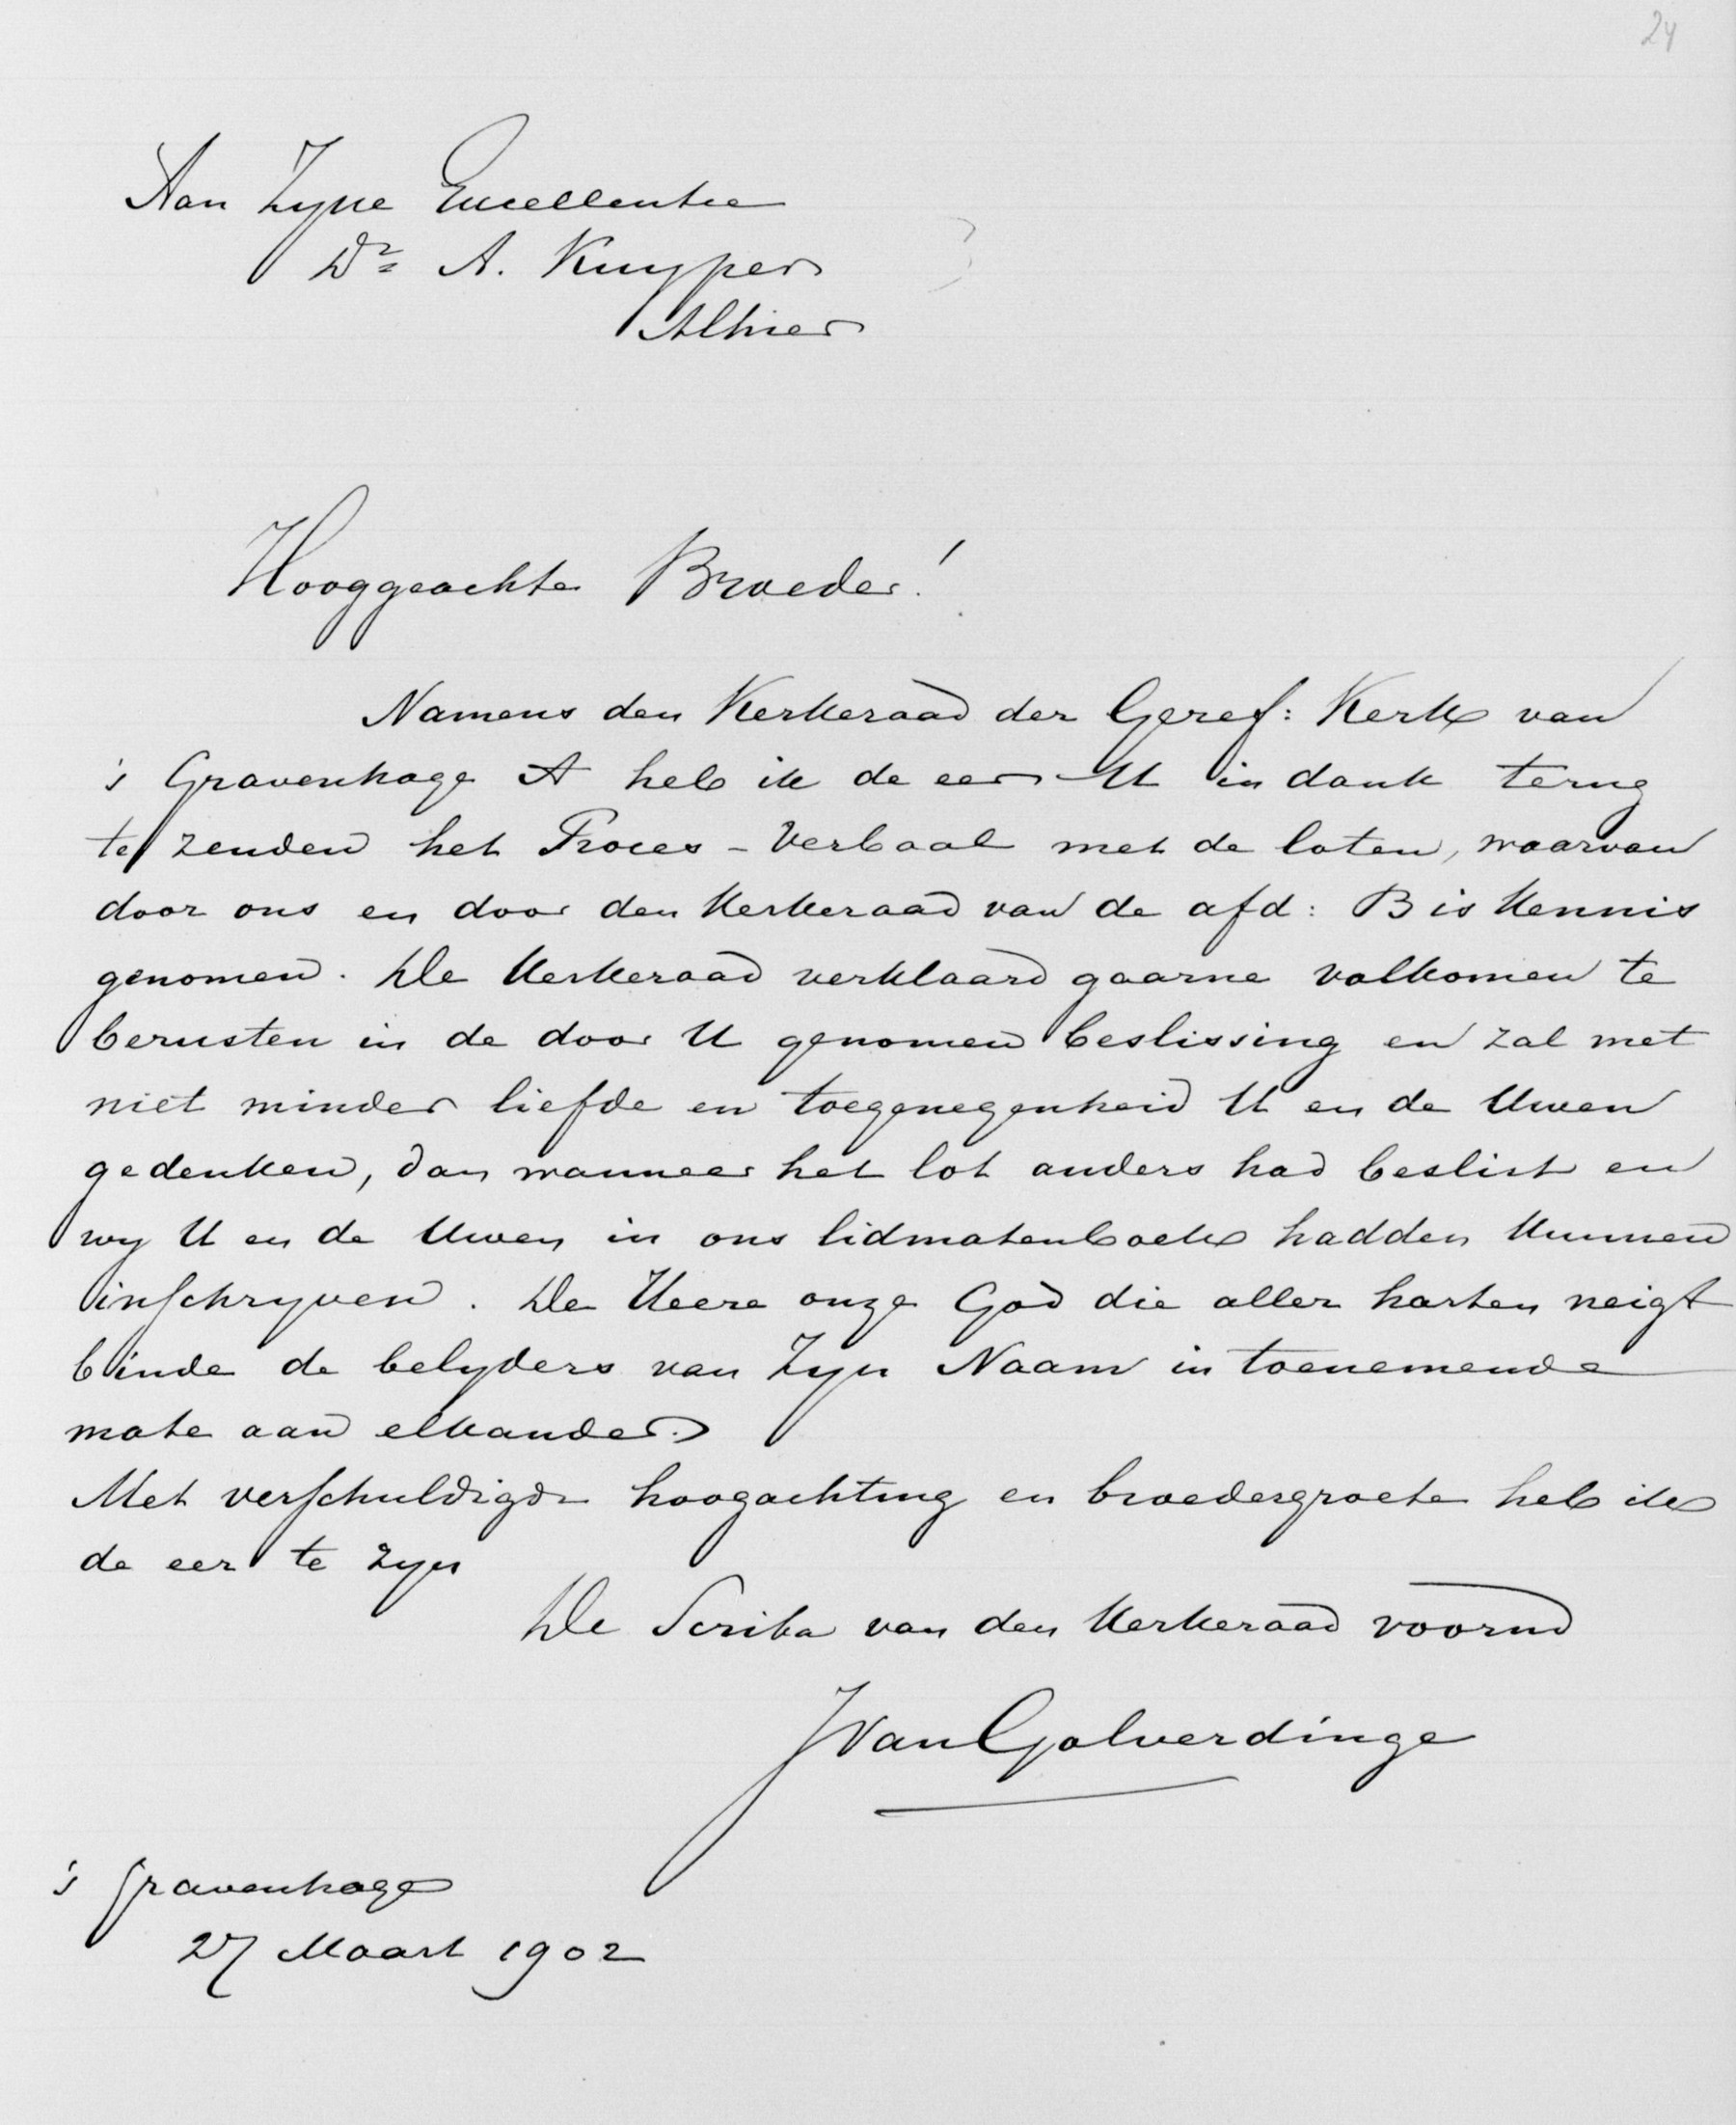 24
Aan Zyne Excellentie
Dr A. Kuyper
Alhier
Hooggeachte Broeder!
Namens den Kerkeraad der Geref: Kerk van
's Gravenhage A heb ik de eer U in dank terug
te zenden het Proces-Verbaal met de loten, waarvan
door ons en door den Kerkeraad van de afd: B is kennis
genomen. De Kerkeraad verklaard gaarne volkomen te
berusten in de door U genomen beslissing en zal met
niet minder liefde en toegenegenheid U en de Uwen
gedenken, dan wanneer het lot anders had beslist en
wy U en de Uwen in ons lidmatenboek hadden kunnen
inschryven. De Heere onze God die aller harten neigt
binde de belyders van Zyn Naam in toenemende
mate aan elkander.
Met verschuldigde hoogachting en broedergroete heb ik
de eer te zyn
De Scriba van den Kerkeraad voornd
J van Golverdinge
's Gravenhage
27 Maart 1902